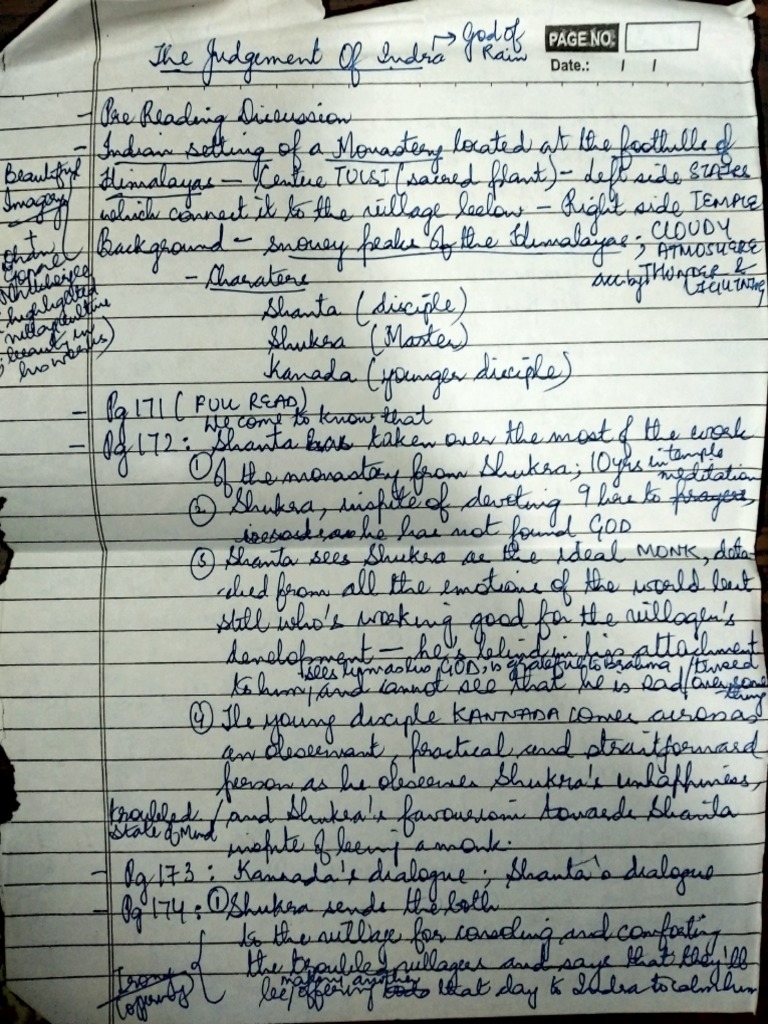 The Judgement Of Indra → God of Rain
PAGE NO:
Date.: / /
- Pre Reading Discussion
- Indian setting of a Monastery located at the foothills of
Himalayas — Centre TULSI (sacred plant) - left side STAIRS
which connect it to the village below - Right side TEMPLE
Background - snowy peaks of the Himalayas; CLOUDY
ATMOSHERE
acc. by THUNDER &
LIGHTNING
Beautiful
Imagery
+
Dhan
Gopal
Mukherjee
highlighted
beauty in
his works)
- Characters
Shanta (disciple)
Shukra (Master)
Kanada (younger disciple)
- Pg 171 (FULL READ)
We come to know that
- Pg 172: Shanta has taken over the most of the work
① of the monastary from Shukra; 10 yrs in temple
meditation
② Shukra, inspite of devoting 9 hrs to prayers,
he has not found GOD
③ Shanta sees Shukra as the ideal MONK, deta-
ched from all the emotions of the world but
still who's working good for the villager's
development — he's blind in his attachment
sees him as his GOD, is grateful to brahma / tensed
to him, and cannot see that he is sad / over some
thing
④ The young disciple KANNADA comes across as
an observant, practical and straitforward
person as he observes Shukra's unhappiness,
troubled
State of Mind
/ and Shukra's favourism towards Shanta
inspite of being a monk.
- Pg 173: Kannada's dialogue; Shanta's dialogue
- Pg 174: ① Shukra sends the both
to the village for consoling and comforting
the troubled villagers and says that they'll
making another
be / offering that day to Indra to calm him
Irony